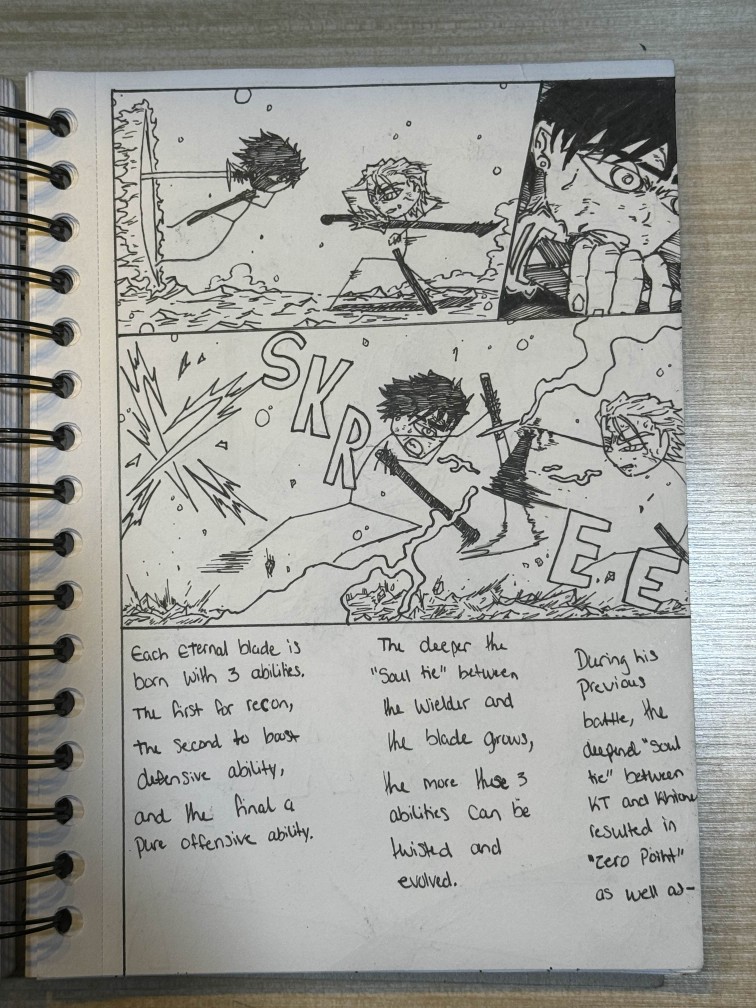 SKR
EE
Each Eternal blade is
born with 3 abilities.
The first for recon,
the second to boost
defensive ability,
and the final a
pure offensive ability.
The deeper the
"Soul tie" between
the wielder and
the blade grows,
the more these 3
abilities can be
twisted and
evolved.
During his
previous
battle, the
deepend "Soul
tie" between
KT and
resulted in
"Zero Point"
as well as-